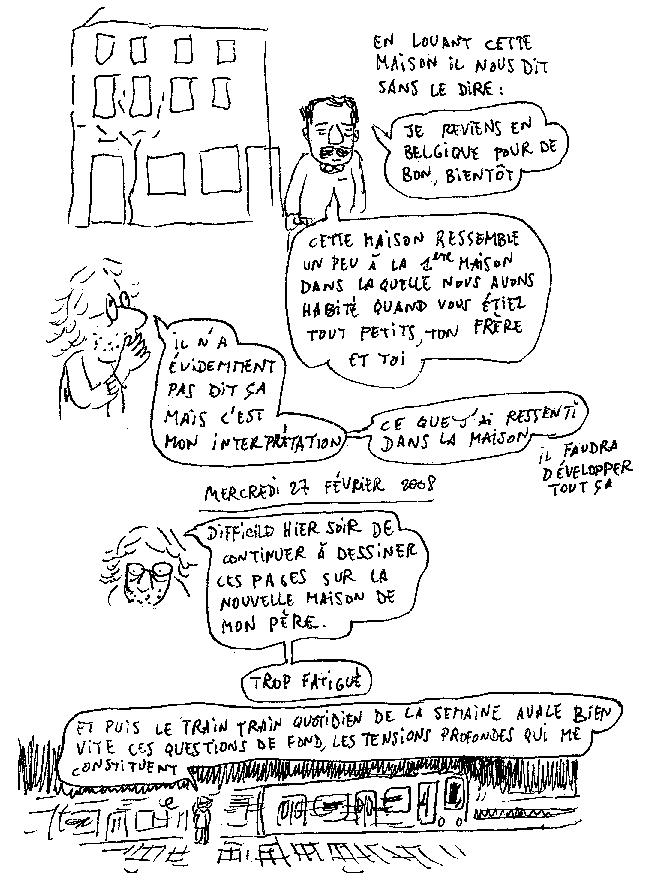 EN LOUANT CETTE
MAISON IL NOUS DIT
SANS LE DIRE :
JE REVIENS EN
BELGIQUE POUR DE
BON, BIENTÔT
CETTE MAISON RESSEMBLE
UN PEU À LA 1ère MAISON
DANS LAQUELLE NOUS AVONS
HABITÉ QUAND VOUS ÉTIEZ
TOUT PETITS, TON FRÈRE
ET TOI
IL N'A
ÉVIDEMMENT
PAS DIT ÇA
MAIS C'EST
MON INTERPRÉTATION
CE QUE J'AI RESSENTI
DANS LA MAISON
IL FAUDRA
DÉVELOPPER
TOUT ÇA
MERCREDI 27 FÉVRIER 2008
DIFFICILE HIER SOIR DE
CONTINUER À DESSINER
CES PAGES SUR LA
NOUVELLE MAISON DE
MON PÈRE.
TROP FATIGUÉ
ET PUIS LE TRAIN TRAIN QUOTIDIEN DE LA SEMAINE AVALE BIEN
VITE CES QUESTIONS DE FOND, LES TENSIONS PROFONDES QUI ME
CONSTITUENT